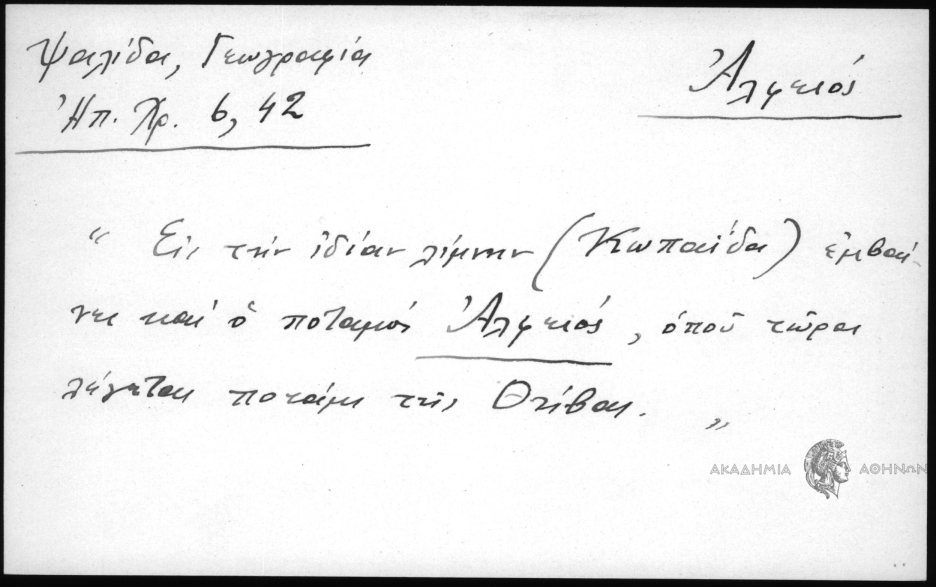 Ψαλίδα, Γεωγραφία
Ἀλφειός
Ἠπ. Χρ. 6, 42
“ Εἰς τὴν ἰδίαν λίμνην (Κωπαΐδα) ἐμβαί-
νει καὶ ὁ ποταμὸς Ἀλφειός, ὁποῦ τῶρα
λέγεται ποτάμι τῆς Θήβας. „
ΑΚΑΔΗΜΙΑ ΑΘΗΝΩΝ